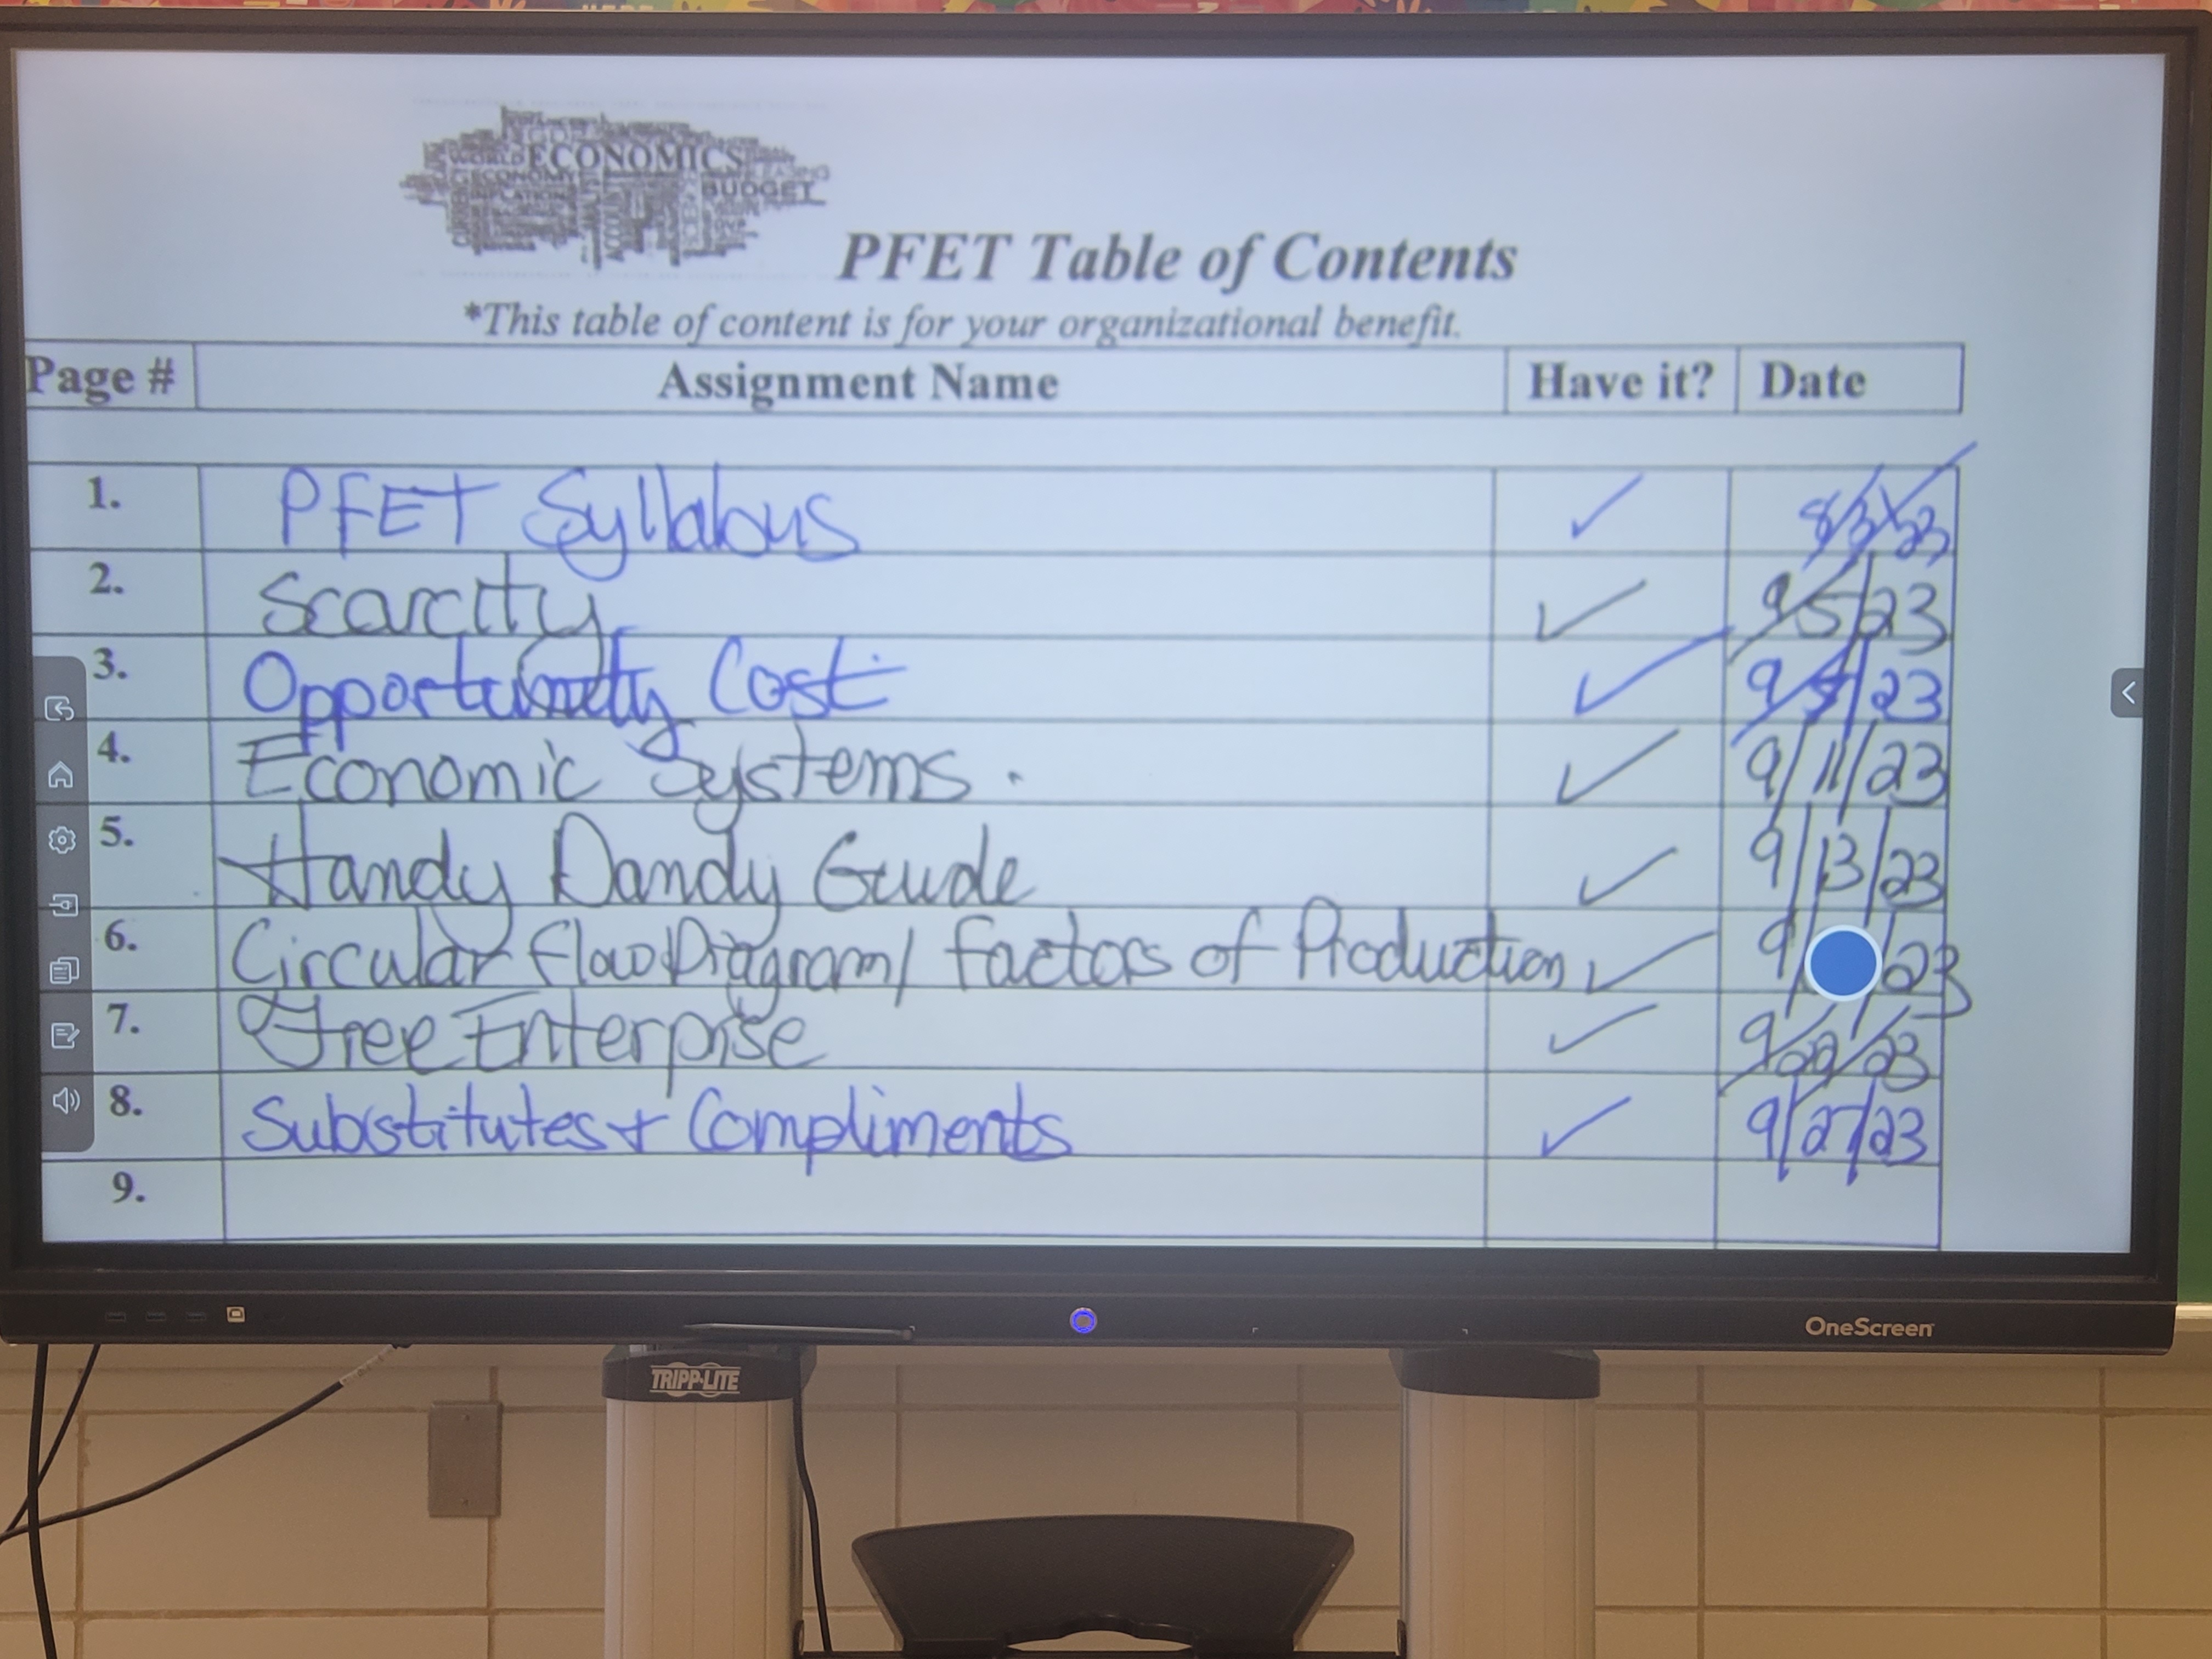 ECONOMICS
BUDGET
PFET Table of Contents
*This table of content is for your organizational benefit.
Page # Assignment Name Have it? Date
1. PFET Syllabus ✓ 8/31/23
2. Scarcity ✓ 9/5/23
3. Opportunity Cost ✓ 9/5/23
4. Economic Systems. ✓ 9/11/23
5. Handy Dandy Guide ✓ 9/13/23
6. Circular Flow Diagram/ Factors of Production ✓ 9/ /23
7. Free Enterprise ✓ 9/22/23
8. Substitutes + Compliments ✓ 9/27/23
9.
OneScreen
TRIPP-LITE